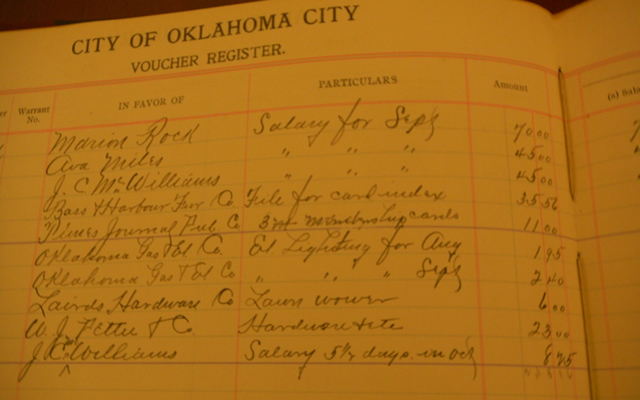 CITY OF OKLAHOMA CITY
VOUCHER REGISTER.
Warrant No. IN FAVOR OF PARTICULARS Amount (a) Sala
Marion Rock Salary for Sept 70 00
Ava Miles " " " 45 00
J. C. McWilliams " " " 45 00
Bass & Harbour Fur Co. File for card index 35 56
Times Journal Pub Co 3 m membership cards 11 00
Oklahoma Gas & El Co. El Lighting for Aug 1 95
Oklahoma Gas & El Co " " " Sept 2 40
Lairds Hardware Co Lawn mower 6 00
W. J. Pettee & Co. Hardware etc 23 00
J. C. McWilliams Salary 5½ days in Oct 8 25